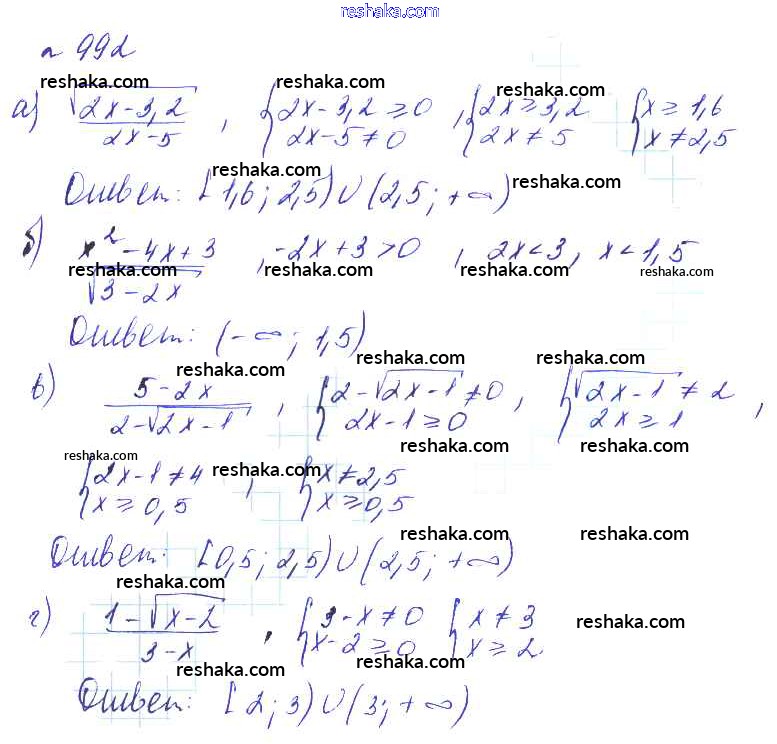 reshaka.com
n 992
reshaka.com reshaka.com reshaka.com reshaka.com
а) √(2x-3,2)/(2x-5), {2x-3,2≥0 2x-5≠0, {2x≥3,2 2x≠5 {x≥1,6 x≠2,5
reshaka.com reshaka.com
Ответ: [1,6; 2,5)∪(2,5; +∞)
б) (x²-4x+3)/√(3-2x), -2x+3>0, 2x<3, x<1,5
reshaka.com reshaka.com reshaka.com reshaka.com
Ответ: (-∞; 1,5)
reshaka.com reshaka.com reshaka.com
в) (5-2x)/(2-√(2x-1)), {2-√(2x-1)≠0 2x-1≥0, {√(2x-1)≠2 2x≥1,
reshaka.com reshaka.com reshaka.com reshaka.com
{2x-1≠4 x≥0,5, {x≠2,5 x≥0,5
reshaka.com reshaka.com
Ответ: [0,5; 2,5)∪(2,5; +∞)
reshaka.com
г) (1-√(x-2))/(3-x), {3-x≠0 x-2≥0 {x≠3 x≥2.
reshaka.com reshaka.com
reshaka.com reshaka.com reshaka.com
Ответ: [2; 3)∪(3; +∞)